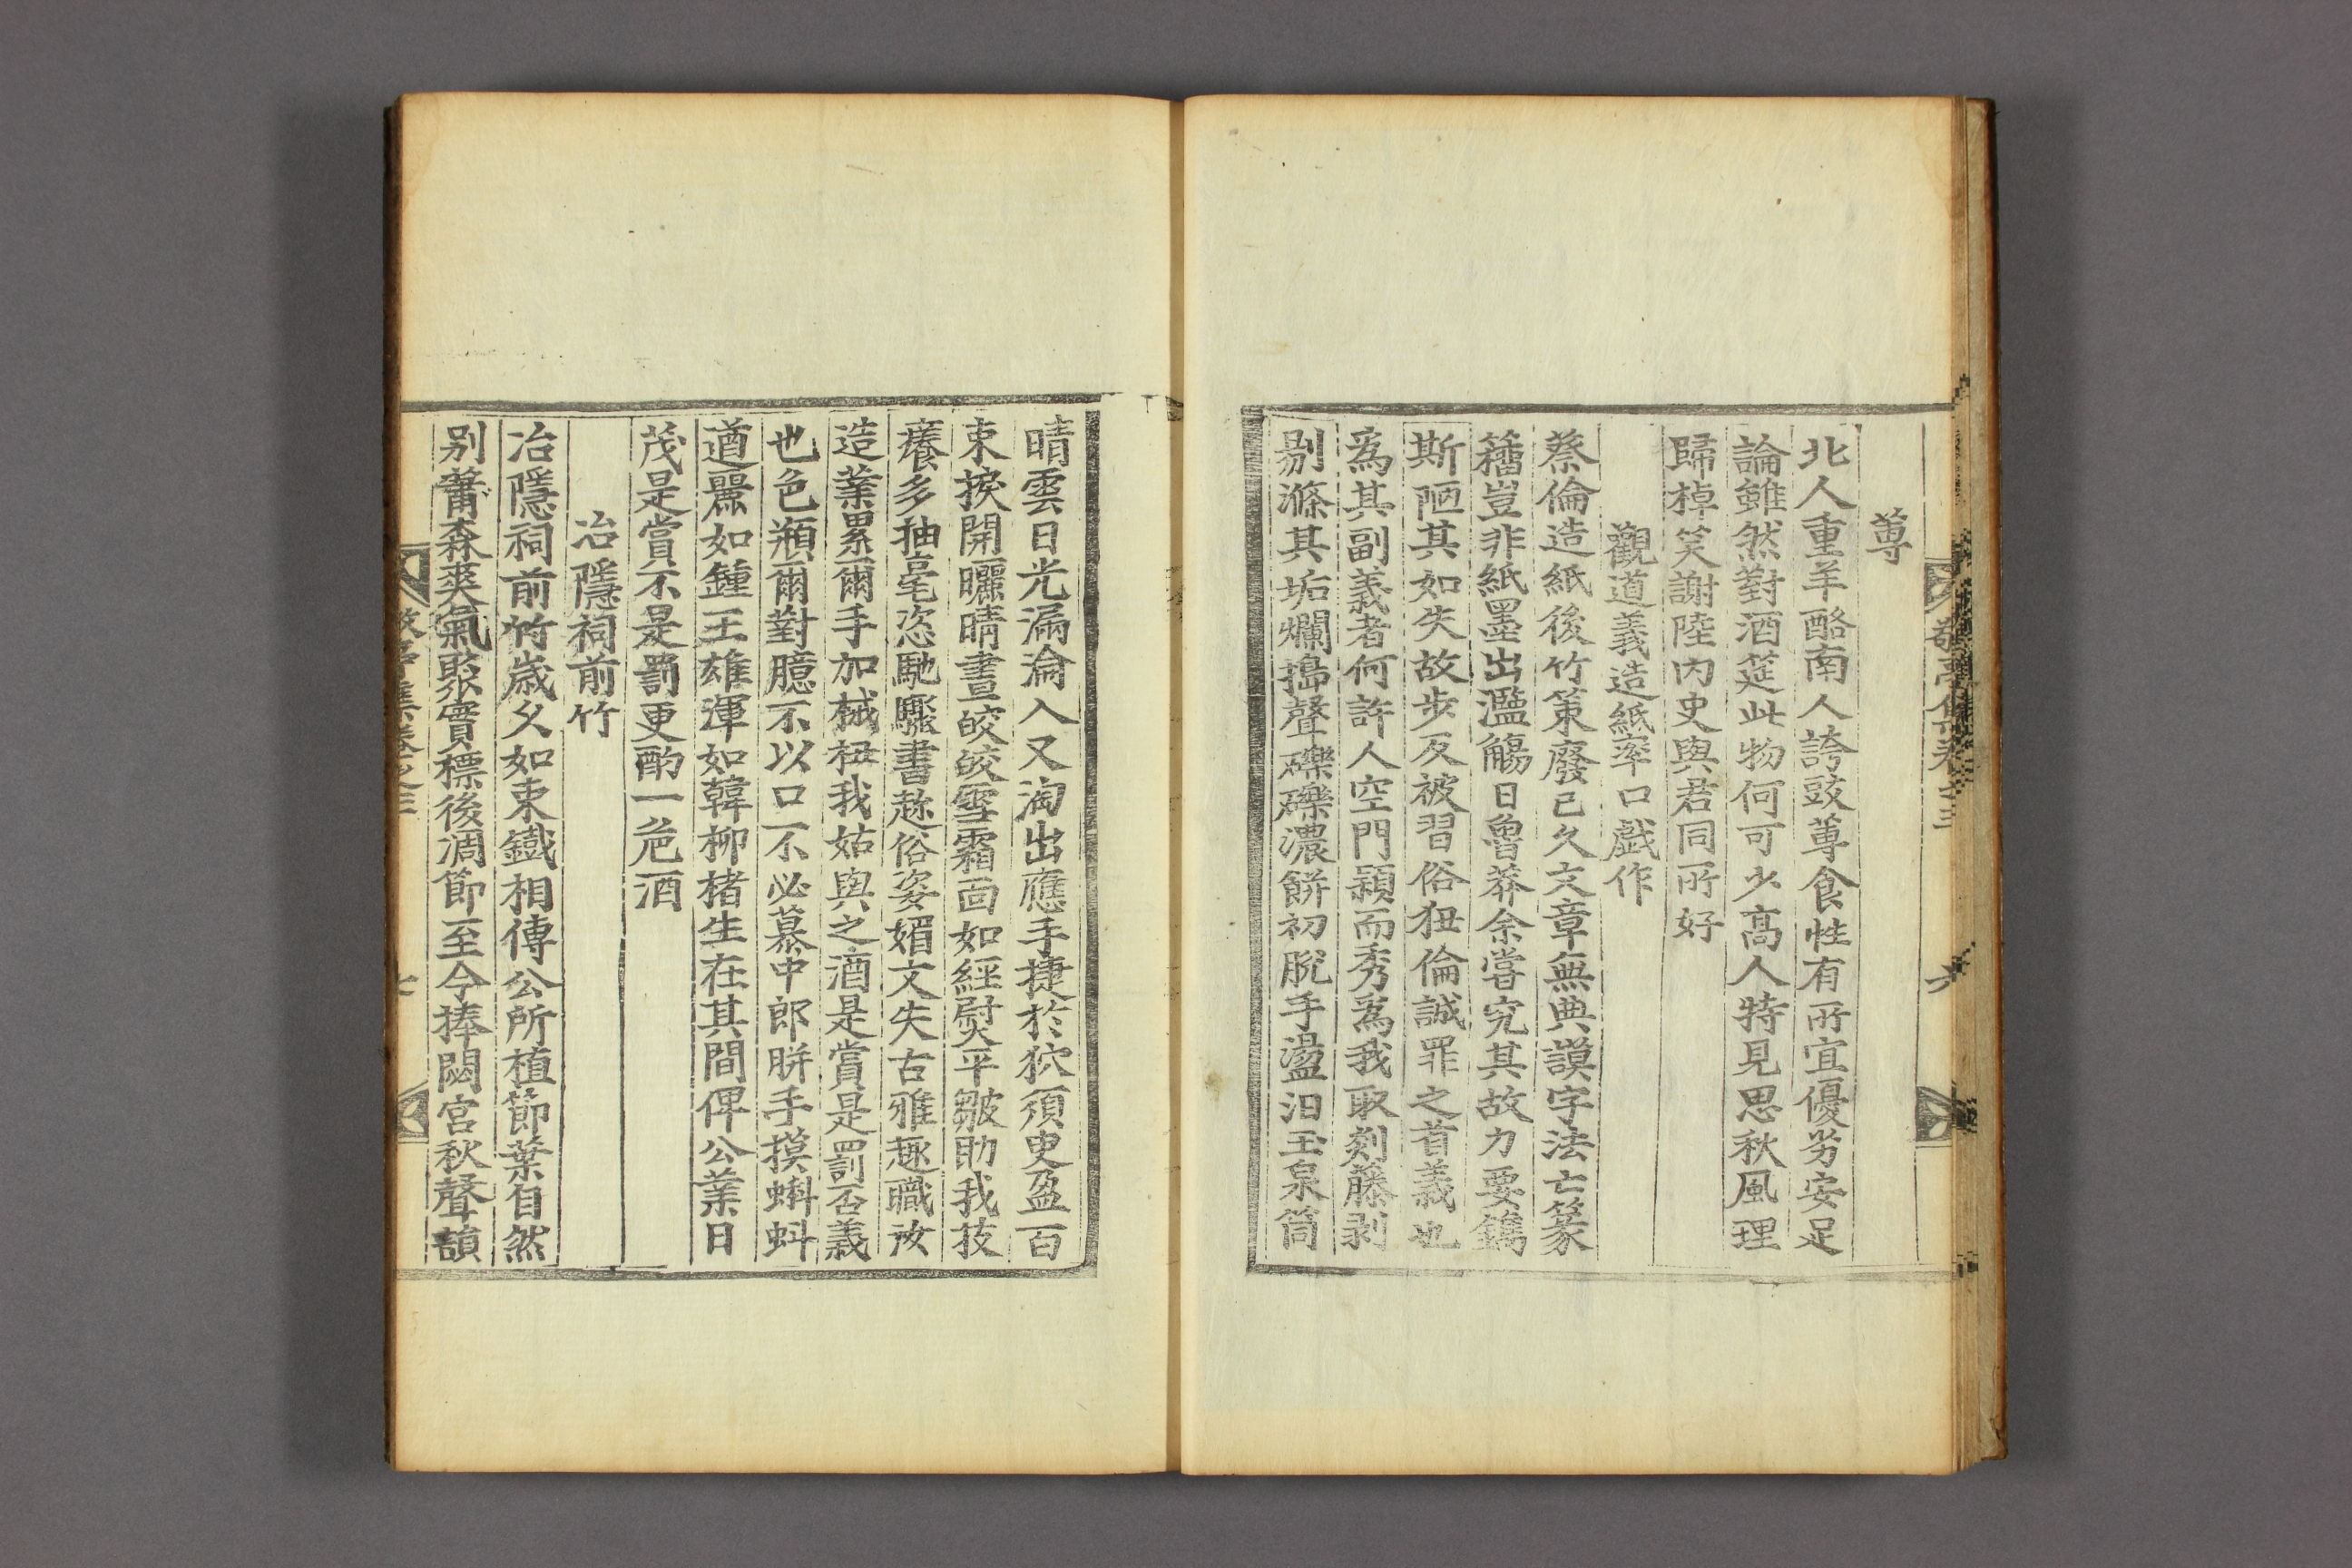 敬亭集卷之三
六
蓴
北人重羊酪南人誇豉蓴食性有所宜優劣安足
論雖然對酒筵此物何可少高人特見思秋風理
歸棹笑謝陸內史與君同所好
觀道義造紙率口戱作
蔡倫造紙後竹策廢已久文章無典謨字法亡篆
籒豈非紙墨出濫觴日魯莽余嘗究其故力要鐫
斯陋其如失故步反被習俗狃倫誠罪之首義也
爲其副義者何許人空門穎而秀爲我取剡藤剥
剔滌其垢爛搗聲礫礫濃餠初脫手盪汨玉泉筒
晴雲日光漏淪入又淘出應手捷於狖須臾盈百
束捩開曬晴晝皎皎雪霜面如經熨平皺助我技
癢多抽毫恣馳驟書趂俗姿媚文失古雅趣職汝
造業累爾手加械杻我姑與之酒是賞是罰否義
也色頳爾對臆不以口不必慕中郎胼手摸蝌蚪
遒麗如鍾王雄渾如韓柳楮生在其間俾公業日
茂是賞不是罰更酌一巵酒
冶隱祠前竹
冶隱祠前竹歲久如束鐵相傳公所植節葉自然
别蕭森爽氣聚實標後凋節至今捧閟宮秋聲韻
敬亭集卷之三
七